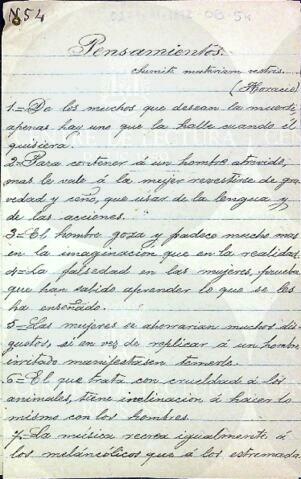 N 54
Pensamientos.
Sumite materiam vestris.
(Horacio)
1.=De los muchos que desean la muerte,
apenas hay uno que la halle cuando él
quisiera.
2=Para contener á un hombre atrevido,
mas le vale á la mujer revestirse de gra-
vedad y ceño, que usar de la lengua y
de las acciones.
3=El hombre goza y padece mucho mas
en la imaginacion que en la realidad.
4=La falsedad en las mujeres, prueba
que han sabido aprender lo que se les
ha enseñado.
5=Las mujeres se ahorrarian muchos dis-
gustos, si en vez de replicar á un hombre
irritado manifestasen temerle.
6=El que trata con crueldad á los
animales, tiene inclinacion á hacer lo
mismo con los hombres.
7=La música recrea igualmente á
los melancólicos que á los estremada